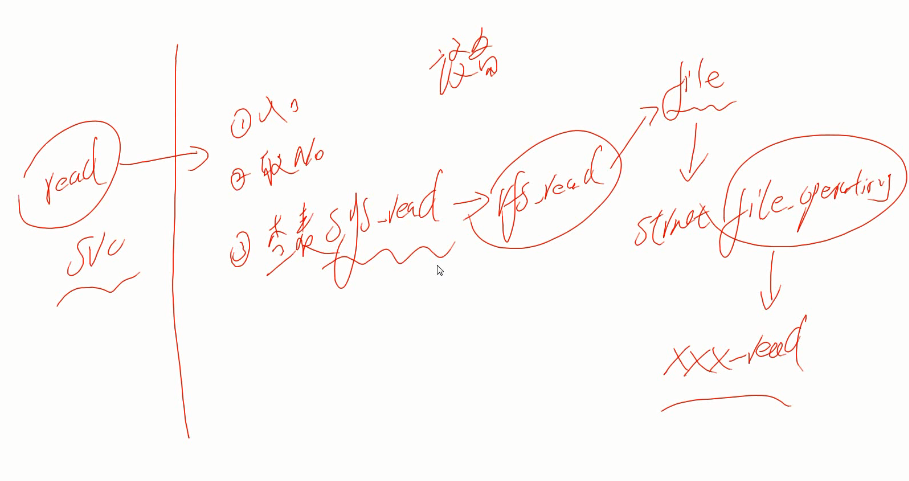 设备
read
svc
①入口
②取No
③查表sys_read
vfs_read
file
struct file_operations
xxx_read